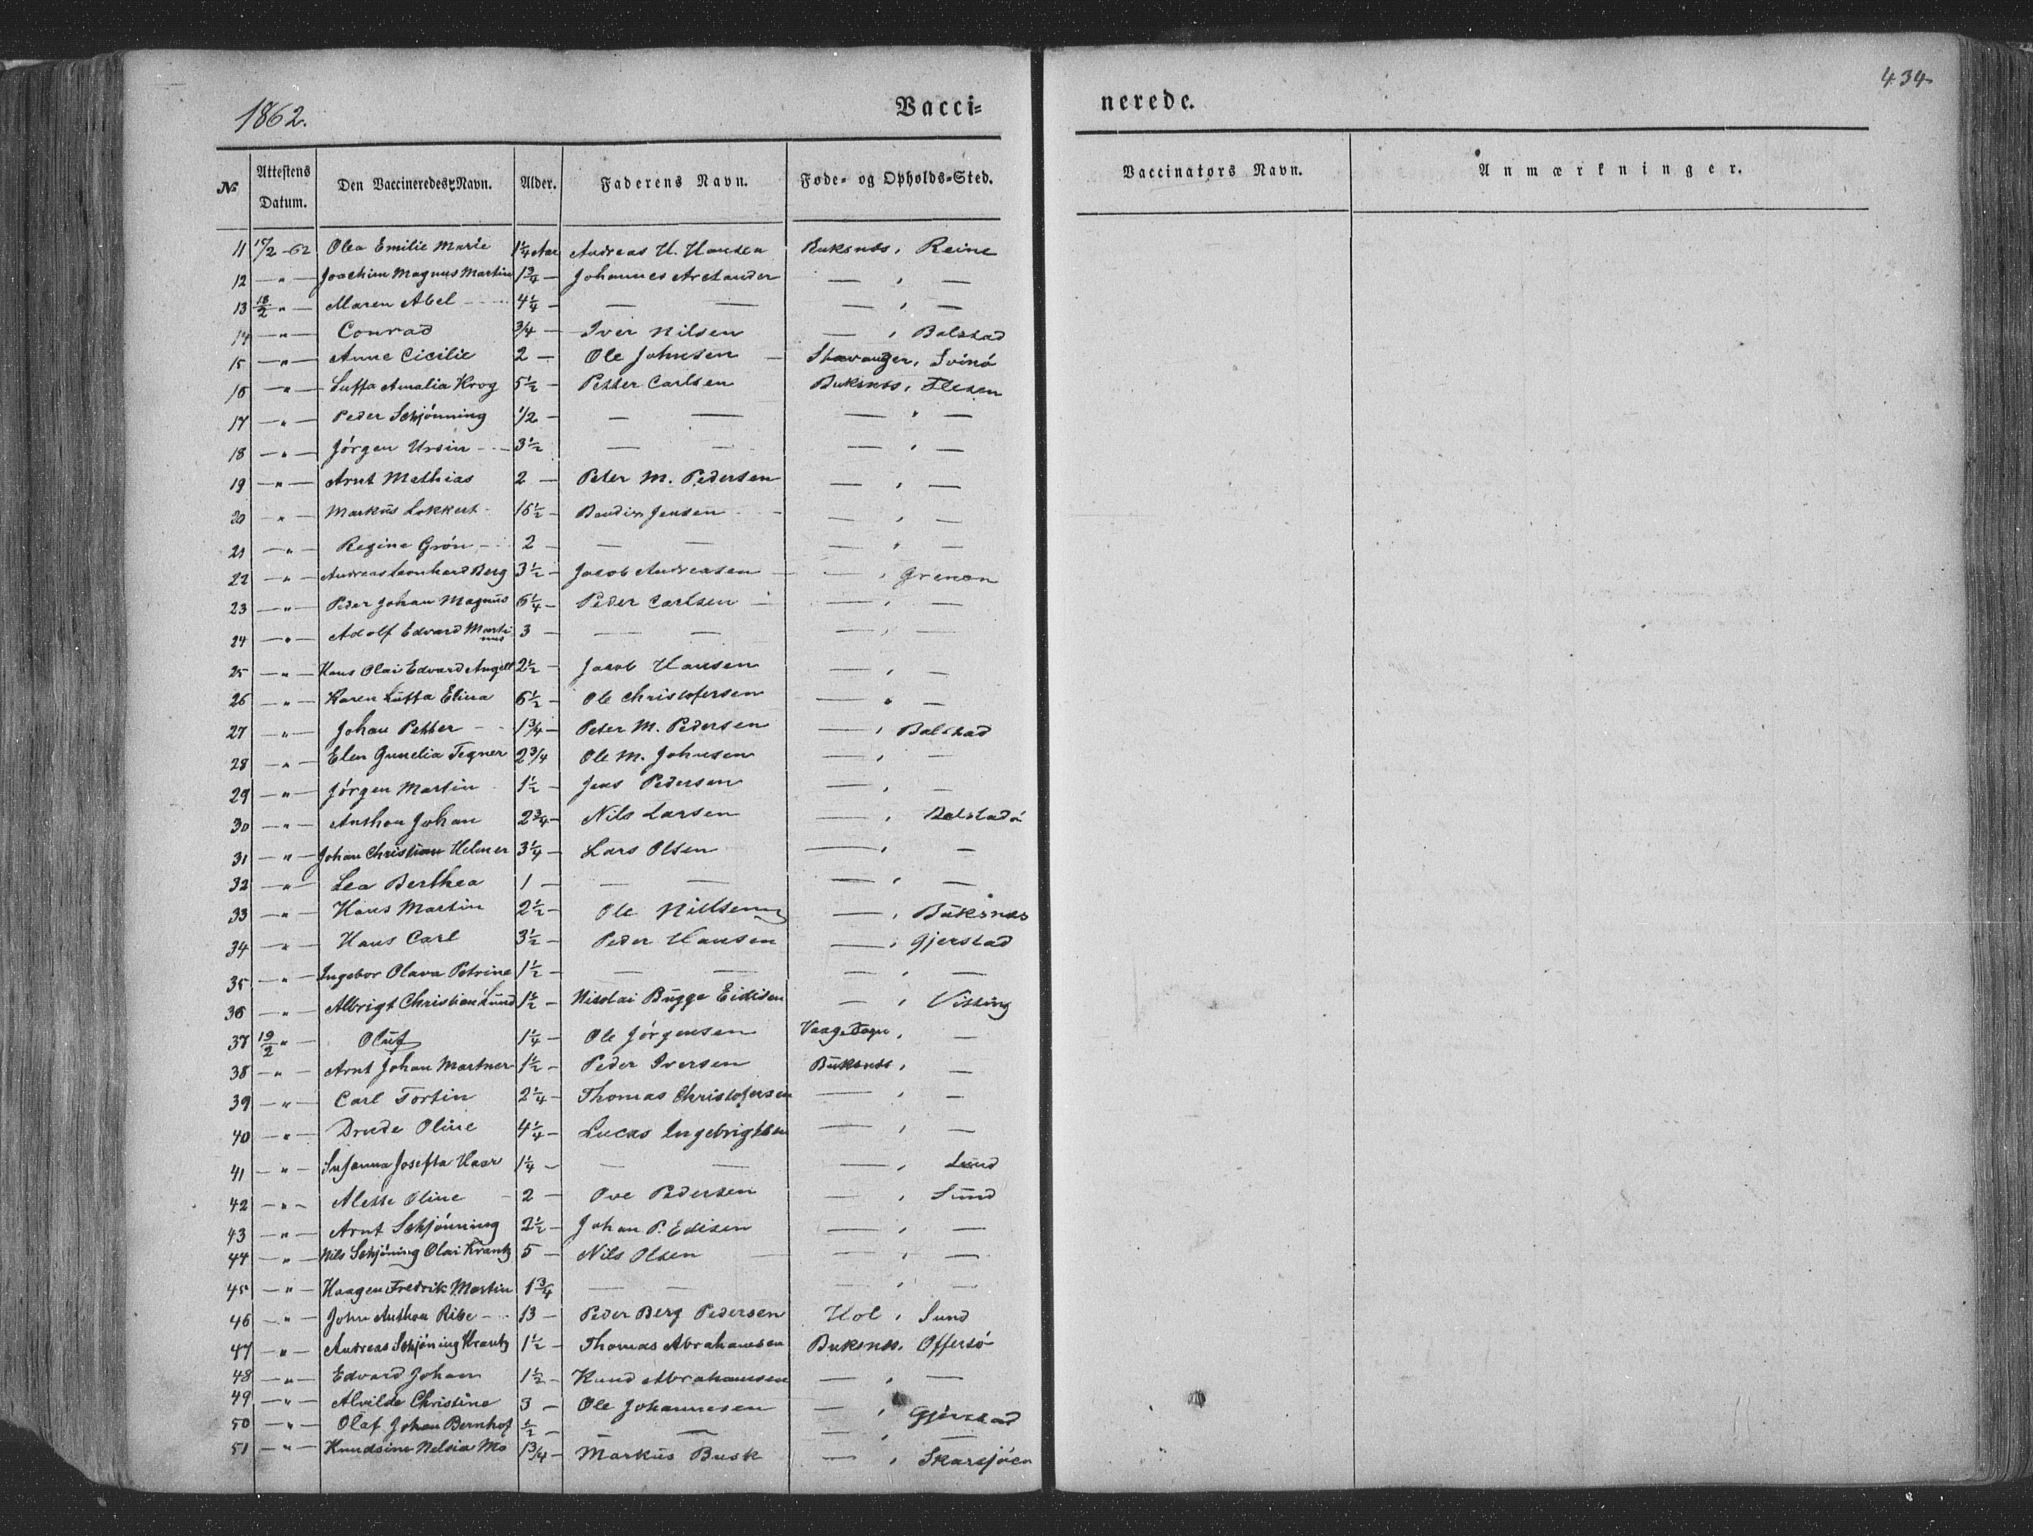 434
1862.
Vacci=
nerede.
No
Attestens Datum.
Den Vaccineredes Navn.
Alder.
Faderens Navn.
Føde- og Opholds-Sted.
Vaccinators Navn.
Anmærkninger.
11 17/2 -62 Olea Emilie Marie 1 1/4 Aar Andreas H. Hansen Buksnæs, Reine
12 — " — Joachim Magnus Martin 1 3/4 — Johannes Arctander — , —
13 18/2 " — Maren Abel 4 1/4 — — — — , —
14 — " — Conrad 3/4 — Iver Nilsen — , Balstad
15 — " — Anne Cicilie 2 — Ole Johnsen — Stavanger, Svinø
16 — " — Luffa Amalia Krog 5 1/2 — Petter Carlsen Buksnæs, Flesen
17 — " — Peder Schjönning 1/2 — — — — , —
18 — " — Jørgen Ursin 3 1/2 — — — , —
19 — " — Arnt Mathias 2 — Peter M. Pedersen — , —
20 — " Markus Lokkert 16 1/2 — Jensen — , —
21 — " — Regine Grøn 2 — — — — , —
22 — " — Andreas Leonhard Berg 3 1/2 — Jacob Andreasen — — , Grenan
23 — " — Peder Johan Magnus 6 1/4 — Peder Carlsen — , —
24 — " — Adolf Edvard Martinus 3 — — — — , —
25 — " — Hans Olai Edvard Angell 2 1/2 — Jacob Hansen — , —
26 — " — Karen Lutta Elina 6 1/2 — Ole Christofersen — " —
27 — " — Johan Petter 1 3/4 — Peter M. Pedersen — , Balstad
28 — " — Elen Gunelia Tegner 2 3/4 Ole M. Johnsen — , —
29 — " — Jørgen Martin 1 1/2 — Jens Pedersen — , —
30 — " — Anthon Johan 2 3/4 — Nils Larsen — , Balstadø
31 — " — Johan Christian Helmer 3 1/4 — Lars Olsen — , —
32 — " — Lea Berthea 1 — — — — , —
33 — " — Hans Martin 2 1/2 — Ole Nillsen — , Buksnæs
34 — " Hans Carl 3 1/2 — Peder Hansen — , Gjerstad
35 — " — Ingebor Olava Petrine 1 1/2 — — — — , —
36 — " — Albrigt Christian Lund 1 1/2 — Nicolai Bugge Eidisen — ,
37 19/2 " — Oluf 1 1/4 — Ole Jørgensen Vaage Sogn , —
38 — " — Arnt Johan Martner 1 1/2 — Peder Iversen Buksnæs, —
39 — " — Carl Tortin 2 1/4 — Thomas Christofersen — , —
40 — " — Drude Oline 4 1/4 — Lucas Ingebrigtsen — , —
41 — " — Susanna Josefta Haar 1 1/4 — — — — , Lund
42 — " — Alette Oline 2 — Ove Pedersen — , Sund
43 — " — Arnt Schjönning 2 1/2 — Johan P. Edisen — , —
44 — " — Nils Schjöning Olai Krantz 5 — Nils Olsen — , —
45 — " — Haagen Fredrik Martin 1 3/4 — — — , —
46 — " — John Anthon Ribe 13 — Peder Berg Pedersen Hol , Sund
47 — " — Andreas Schjöning Krantz 1 1/2 — Thomas Abrahamsen Buksnæs, Offersø
48 — " — Edvard Johan 1 1/2 — Knud Abrahamsen — , —
49 — " — Alvilde Christine 3 — Ole Johannesen — , Gjerstad
50 — " — Olaf Johan Bernhof 1/2 — — — , —
51 — " — Knudsine Nelsia Mo 1 3/4 — Markus Busk — , Skarsjøen